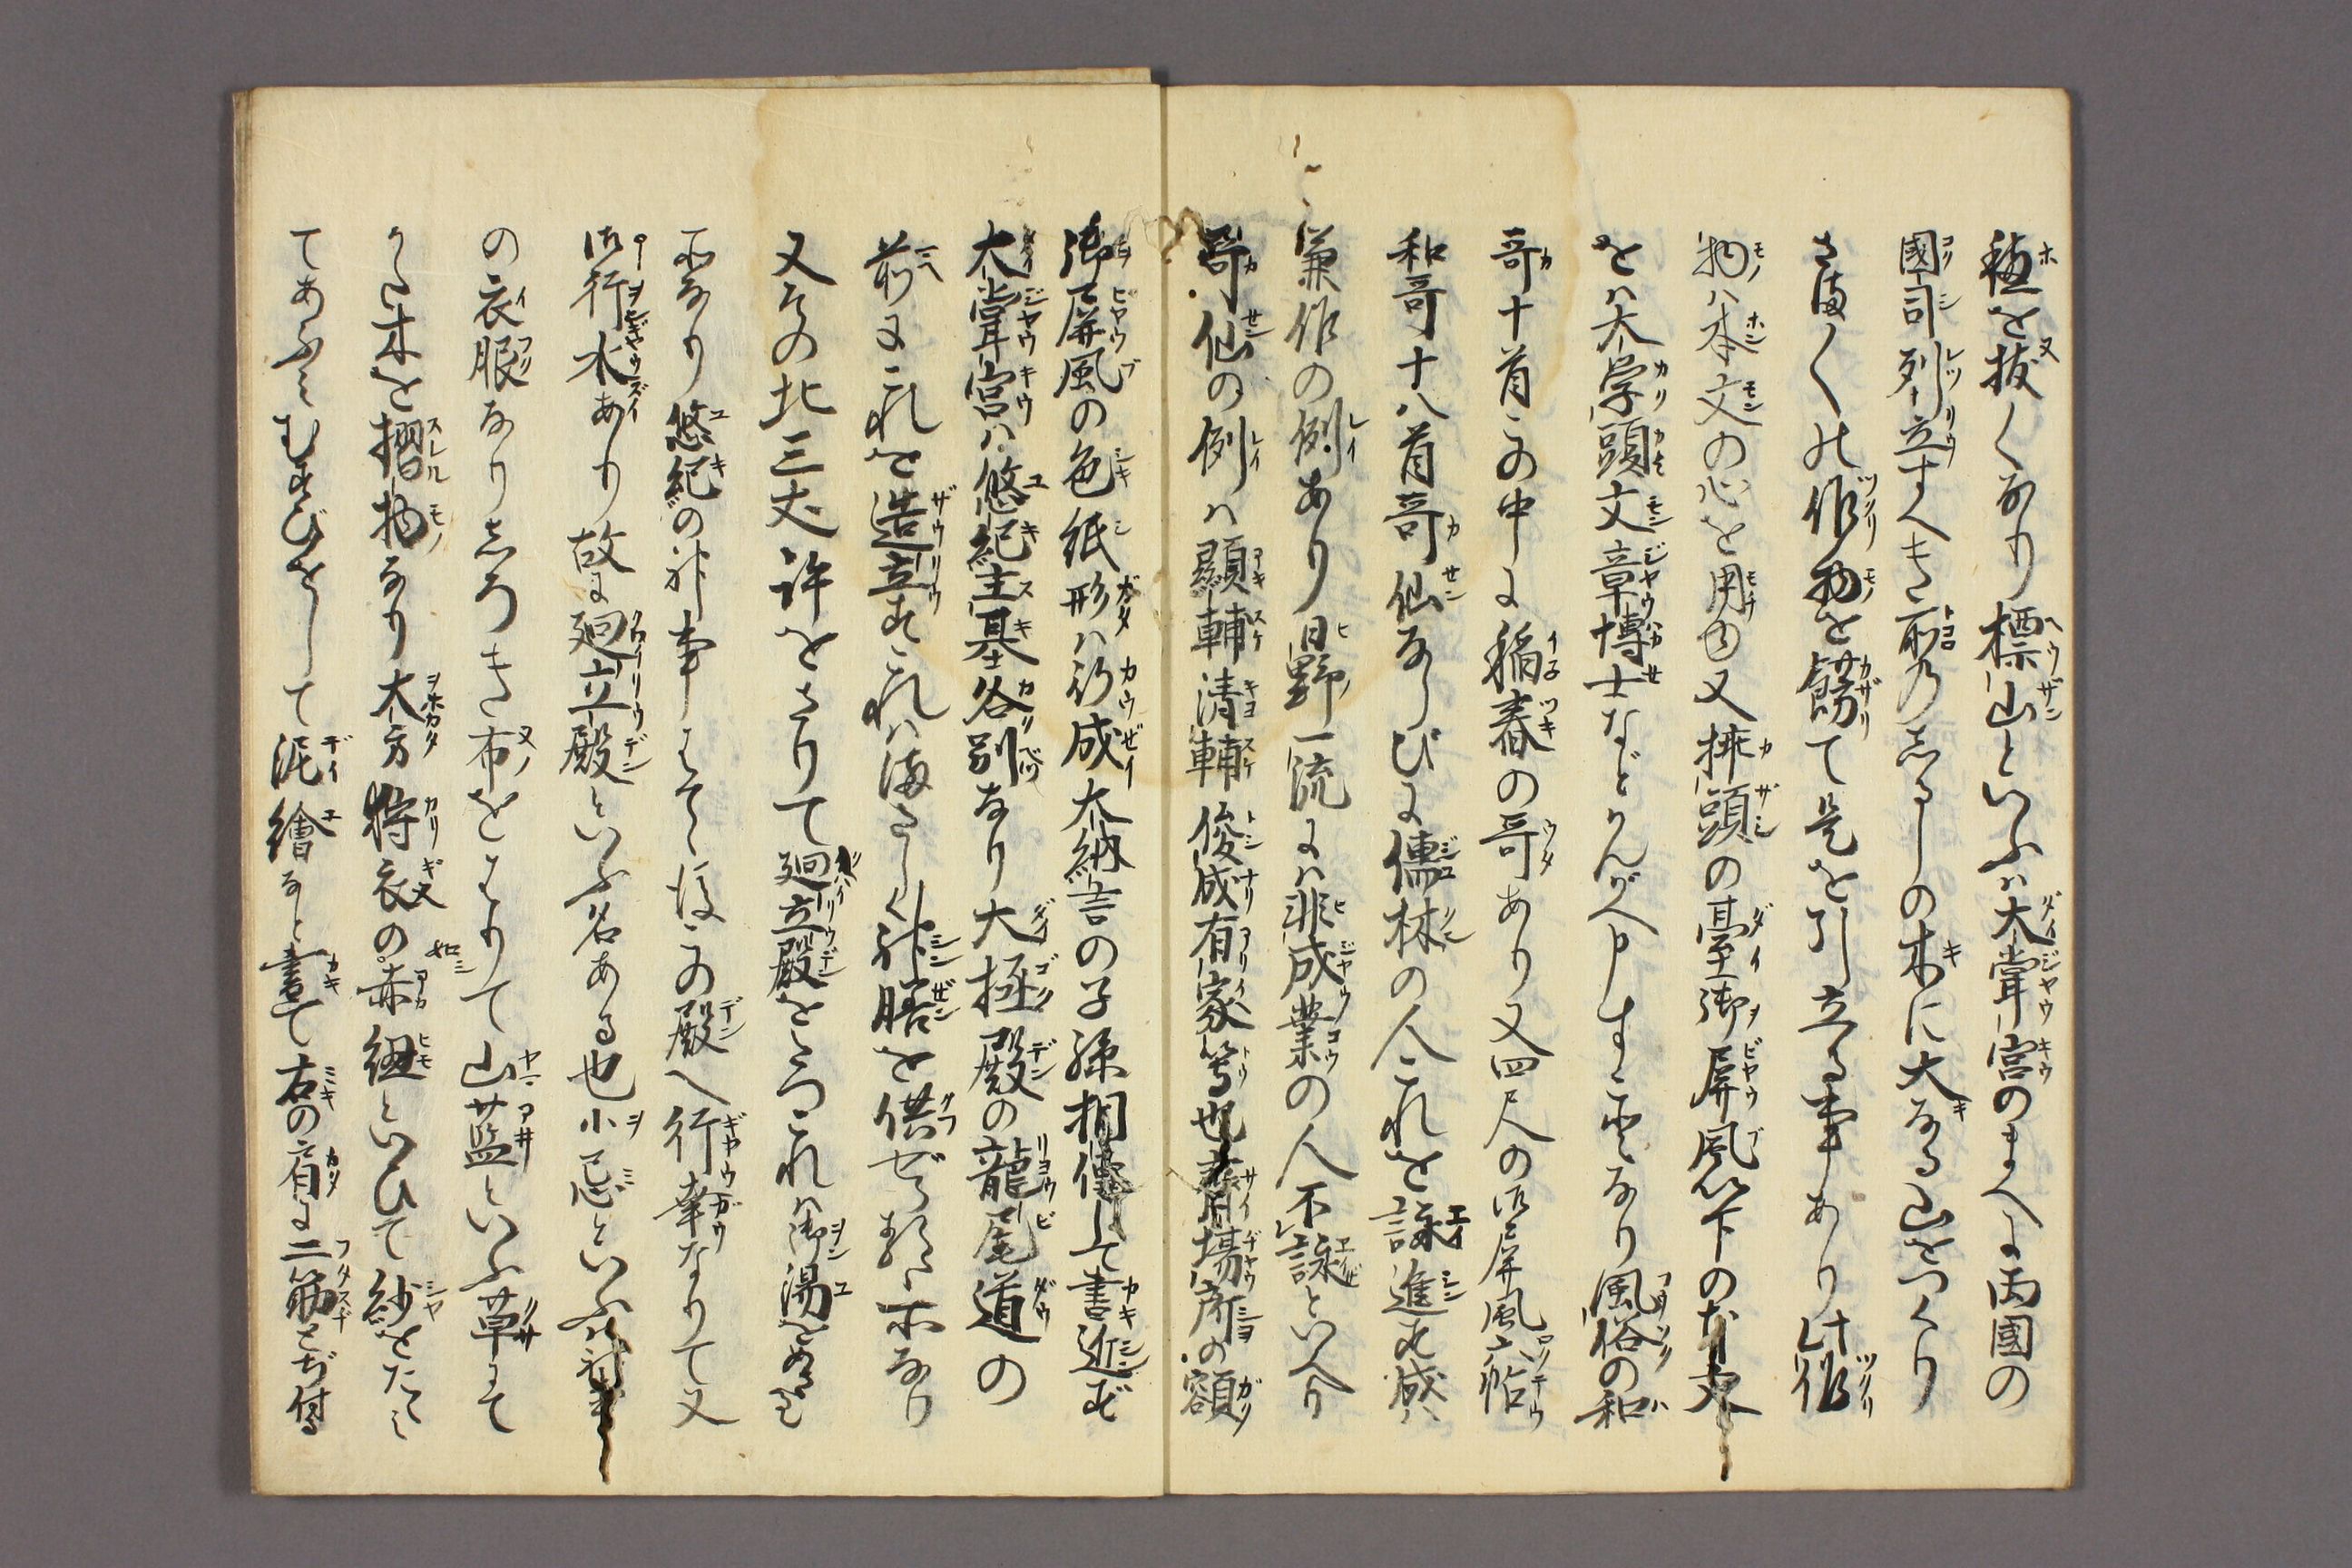 穂を抜くなり標山といふハ大嘗宮のまへに両國の
國司列立すへき所乃志るしの木に大なる山をつくり
さまく乃作物を餝て是を引立る事あり此作
物ハ本文の心を用ゆ又挿頭の臺御屏風以下の本文
をハ大学頭文章博士などかんがへ申すことなり風俗の和
哥十首この中に稲舂の哥あり又四尺の御屏風六帖
和哥十八首哥仙ならびに儒林の人これを詠進す或ハ
兼作の例あり日野一流にハ非成業の人不詠といへり
哥仙の例ハ顕輔清輔俊成有家等也斎場所の額
御屏風の色紙形ハ行成大納言の子孫相傳して書進ず
大嘗宮ハ悠紀主基各別なり大極殿の龍尾道の
前にこれを造立すこれハまさしく神膳を供ぜらるゝ所なり
又その北三丈許をさりて廻立殿をたつこれハ御湯を
所なり悠紀の神事はてゝ後この殿へ行幸なりて又
御行水あり故に廻立殿といふ名ある也小忌といふハ神事
の衣服なり志ろき布をはりて山藍といふ草にて
木を摺物なり大方狩衣の如し赤紐といひて紗をたゝみ
てあふミむすびをして泥繪などを書て右の肩に二筋とぢ付る